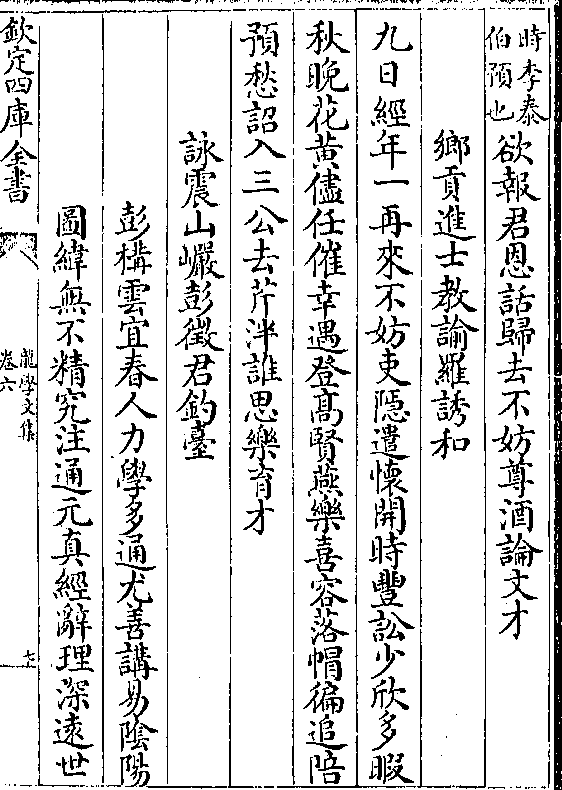 時李泰
伯預也
欲報君恩話歸去不妨尊酒論文才
鄉貢進士教諭羅誘和
九日經年一再來不妨吏隱遣懷開時豐訟少欣多暇
秋晚花黃儘任催幸遇登高賢燕樂喜容落帽徧追陪
預愁詔入三公去芹泮誰思樂育才
詠震山巗彭徵君釣臺
彭構雲宜春人力學多通尤善講易陰陽
圖緯無不精究注通元真經辭理深遠世
欽定四庫全書
龍學文集
卷六
七